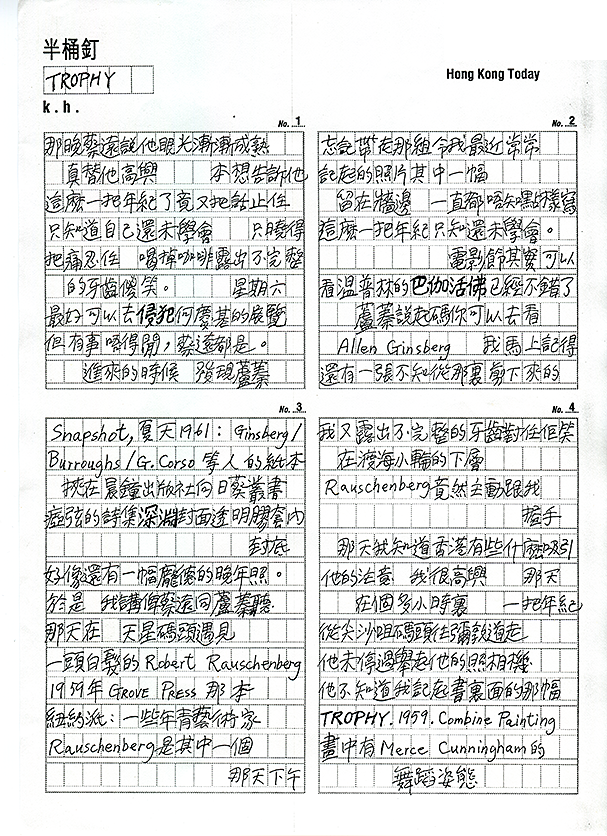 半桶釘
TROPHY
k.h.
Hong Kong Today
No. 1
那晚蔡遠說他眼光漸漸成熟
真替他高興 本想告訴他
這麼一把年紀了竟又把話止住
只知道自己還未學會 只曉得
把痛忍住 喝掉咖啡露出不完整
的牙齒傻笑。 星期六
最好可以去侵犯何慶基的展覽
但有事唔得閒,蔡遠都是。
進來的時候 發現蘆葦
No. 2
忘記帶走那組令我最近常常
記起的照片其中一幅
留在牆邊 一直都唔知點樣寫
這麼一把年紀只知還未學會。
電影節其實可以
看溫普林的巴伽活佛已經不錯了
蘆葦說起碼你可以去看
Allen Ginsberg 我馬上記得
還有一張不知從那裏剪下來的
No. 3
Snapshot,夏天1961:Ginsberg/
Burroughs/G.Corso等人的紙本
挾在晨鐘出版社向日葵叢書
瘂弦的詩集深淵封面透明膠套內
封底
好像還有一幅龐德的晚年照。
於是 我講俾蔡遠同蘆葦聽
那天在 天星碼頭遇見
一頭白髮的Robert Rauschenberg
1959年GROVE PRESS那本
紐約派:一些年青藝術家
Rauschenberg是其中一個
那天下午
No. 4
我又露出不完整的牙齒對住佢笑
在渡海小輪的下層
Rauschenberg竟然主動跟我
握手
那天我知道香港有些什麼吸引
他的注意 我很高興 那天
在個多小時裏 一把年紀
從尖沙咀碼頭往彌敦道走
他未停過舉起他的照相機
他不知道我記起書裏面的那幅
TROPHY.1959.Combine Painting
畫中有Merce Cunningham的
舞蹈姿態